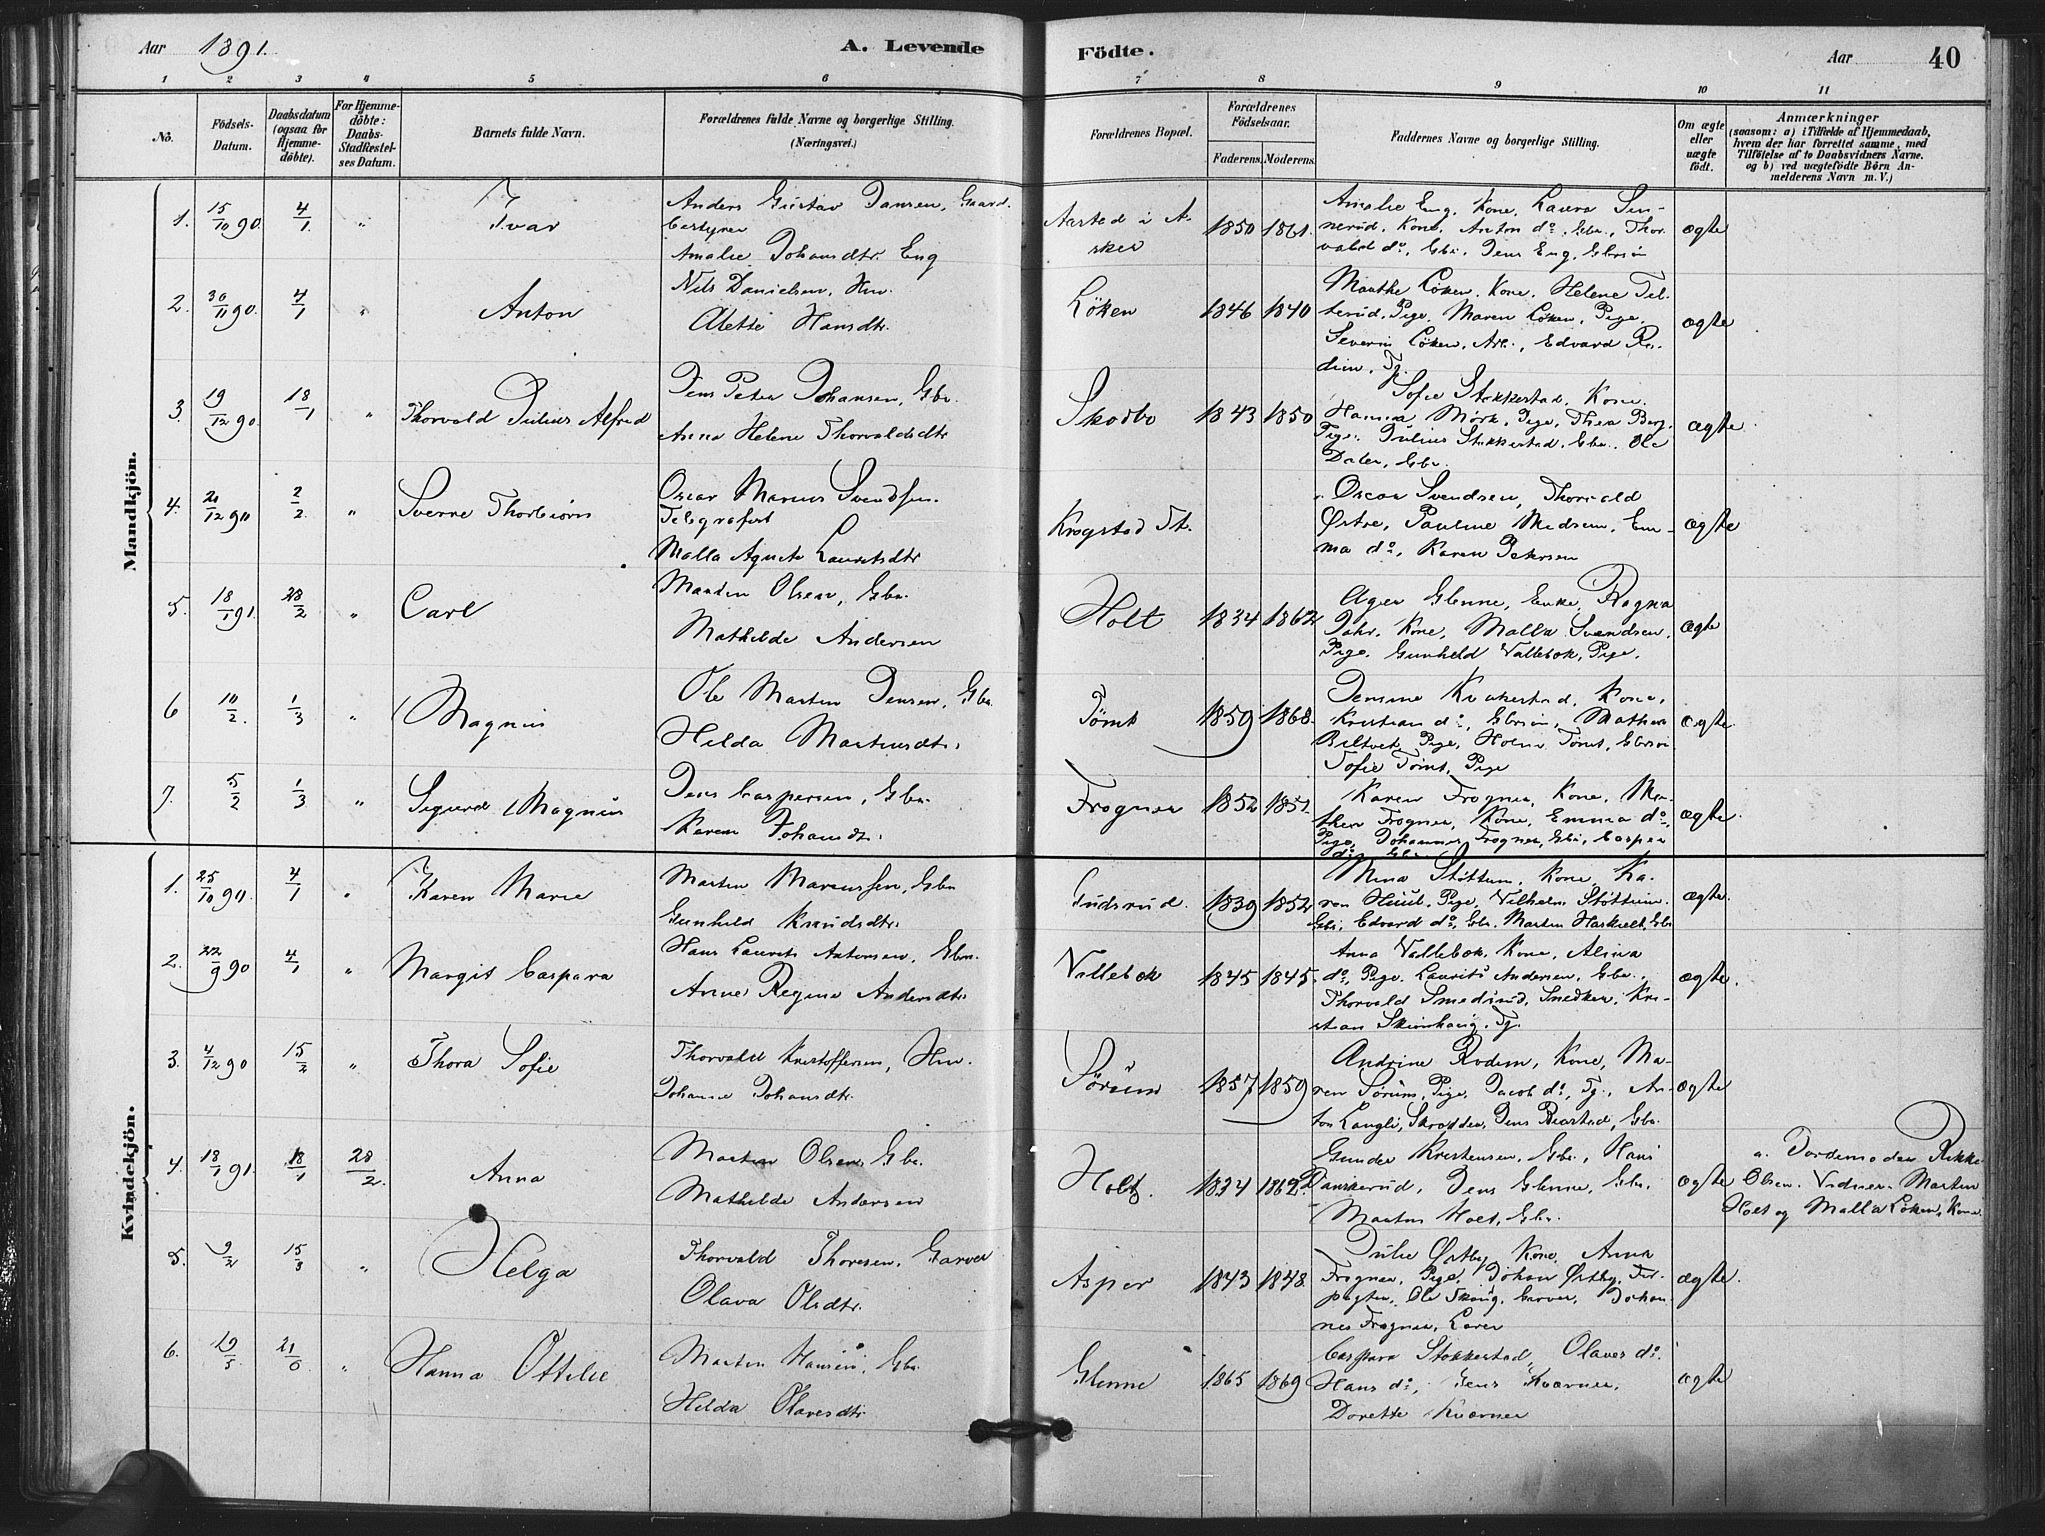 Aar 1891. A. Levende Födte. Aar 40
1 2 3 4 5 6 7 8 9 10 11
No. Födsels-Datum. Daabsdatum (ogsaa for Hjemmedöbte). For Hjemmedöbte: Daabs-Stadfæstelses Datum. Barnets fulde Navn. Forældrenes fulde Navne og borgerlige Stilling. (Næringsvei.) Forældrenes Bopæl. Forældrenes Födselsaar. Faderens. Moderens. Faddernes Navne og borgerlige Stilling. Om ægte eller uægte födt. Anmærkninger (saasom: a) i Tilfælde af Hjemmedaab, hvem der har forrettet samme, med Tilföielse af to Daabsvidners Navne. og b) ved uægtefödte Börn Anmelderens Navn m. V.)
Mandkjön.
1. 15/10 90. 4/1 " Ivar
Anders Gustav Jansen, Gaardbestyrer
Amalie Johansdtr. Eng
Aarstad i Asker 1850 1861.
Amalie Eng, Kone, Laura Sinnerud, Kone, Anton do, Gbr., Thorvald do, Gbr. Jens Eng, Gbrsön
ægte
2. 30/11 90. 4/1 " Anton
Nils Danielsen, Hm.
Alette Hansdtr.
Löken 1846 1840
Marthe Löken, Kone, Helene Telterud, Pige, Maren Löken, Pige,
Severin Löken, Arb., Edvard
ægte
3 19/12 90. 18/1 " Thorvald Julius Alfred
Jens Peter Johansen, Gbr.
Anna Helene Thorvaldsdtr
Skodbo 1843 1850
Sofie Stokkestad, Kone,
Hanna Mörk, Pige, Thea Berg,
Pige, Julius Stokkestad, Gbr. Ole
Dalen, Gbr.
ægte.
4. 21/12 90 2/2 " Sverre Thorbiörn
Oscar Marius Svendsen.
Telegrafist
Malla Agnete Lauritsdtr
Krogstad St.
Oscar Svendsen, Thorvald
Østre, Pauline Madsen, Emma do, Karen Petersen
ægte
5. 18/1 91. 28/2 " Carl
Martin Olsen, Gbr.
Mathilde Andersen
Holt 1834 1862
Glenne, Enke, Ragna
Kone, Malla Svendsen,
Pige, Gunhild Vallebæk, Pige.
ægte
6 10/2. 1/3 " Magnus
Ole Martin Jensen, Gbr.
Hilda Martinsdtr.
Tömt 1859 1868.
Kone,
Kristian do, Gbrsön, Mathea
Biltvet, Pige, Tömt, Gbrsön
Sofie Tömt, Pige
ægte
7. 5/2 1/3 " Sigurd Magnus
Jens Caspersen, Gbr.
Karen Johansdtr.
Frogner 1852 1851.
Karen Frogner, Kone,
Frogner, Kone, Emma do,
Pige, Johannes Frogner, Gbr, Casper
do, Gbr
ægte.
Kvindekjön.
1. 25/10 90. 4/1 " Karen Marie
Martin Marcussen, Gbr
Gunhild Knudsdtr.
Gudsrud. 1839 1852
Mina Støttum, Kone, Karen Pige, Vilhelm Støttum
Gbr, Edvard do, Gbr. Martin Gbr
ægte.
2. 22/9 90 4/1 " Margit Caspara
Hans Laurits Antonsen, Gbr.
Anne Regine Andersdtr
Vallebæk 1845 1845.
Anna Vallebæk, Kone, Alina
do, Pige, Laurits Andersen, Gbr.,
Thorvald Smedsrud, Snedker, Kristian Skionhaug, Tj.
ægte.
3. 4/12 90 15/2 " Thora Sofie
Thorvald Kristoffersen, Hm.
Johanne Johansdtr.
Sörum 1857 1859
Andrine Kone, Maren Sörum, Pige, Jacob do, Tj., Anton Langli, Skrædder, Jens Gbr.
ægte
4. 18/1 91. 18/1 28/2. Anna
Martin Olsen, Gbr.
Mathilde Andersen
Holt. 1834 1862.
Gunder Kristensen, Gbr., Hans
Danskerud, Jens Glenne, Gbr.
Martin Holt, Gbr.
ægte
a. Jordemoder Rikke
Olsen. Vidner Martin
Holt og Malla Löken, Kone.
5. 9/2 15/3 " Helga
Thorvald Thoresen, Garver
Olava Olsdtr.
Asper 1843 1848.
Julie Østby, Kone, Anna
Frogner, Pige, Johan Østby, Forpagter, Ole Skoug, Garver, Johannes Frogner, Lærer
ægte.
6. 19/5 21/6 " Hanna Ottilie
Martin Hansen, Gbr.
Hilda Olavesdtr
Glenne 1865 1869
Caspara Stokkestad, Olaves do.
Hans do, Jens Kværner,
Dorette Kværner
ægte